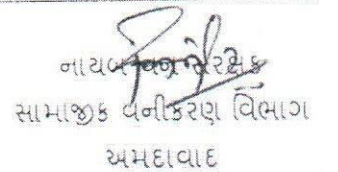 નાયબ વન સંરક્ષક
સામાજીક વનીકરણ વિભાગ
અમદાવાદ